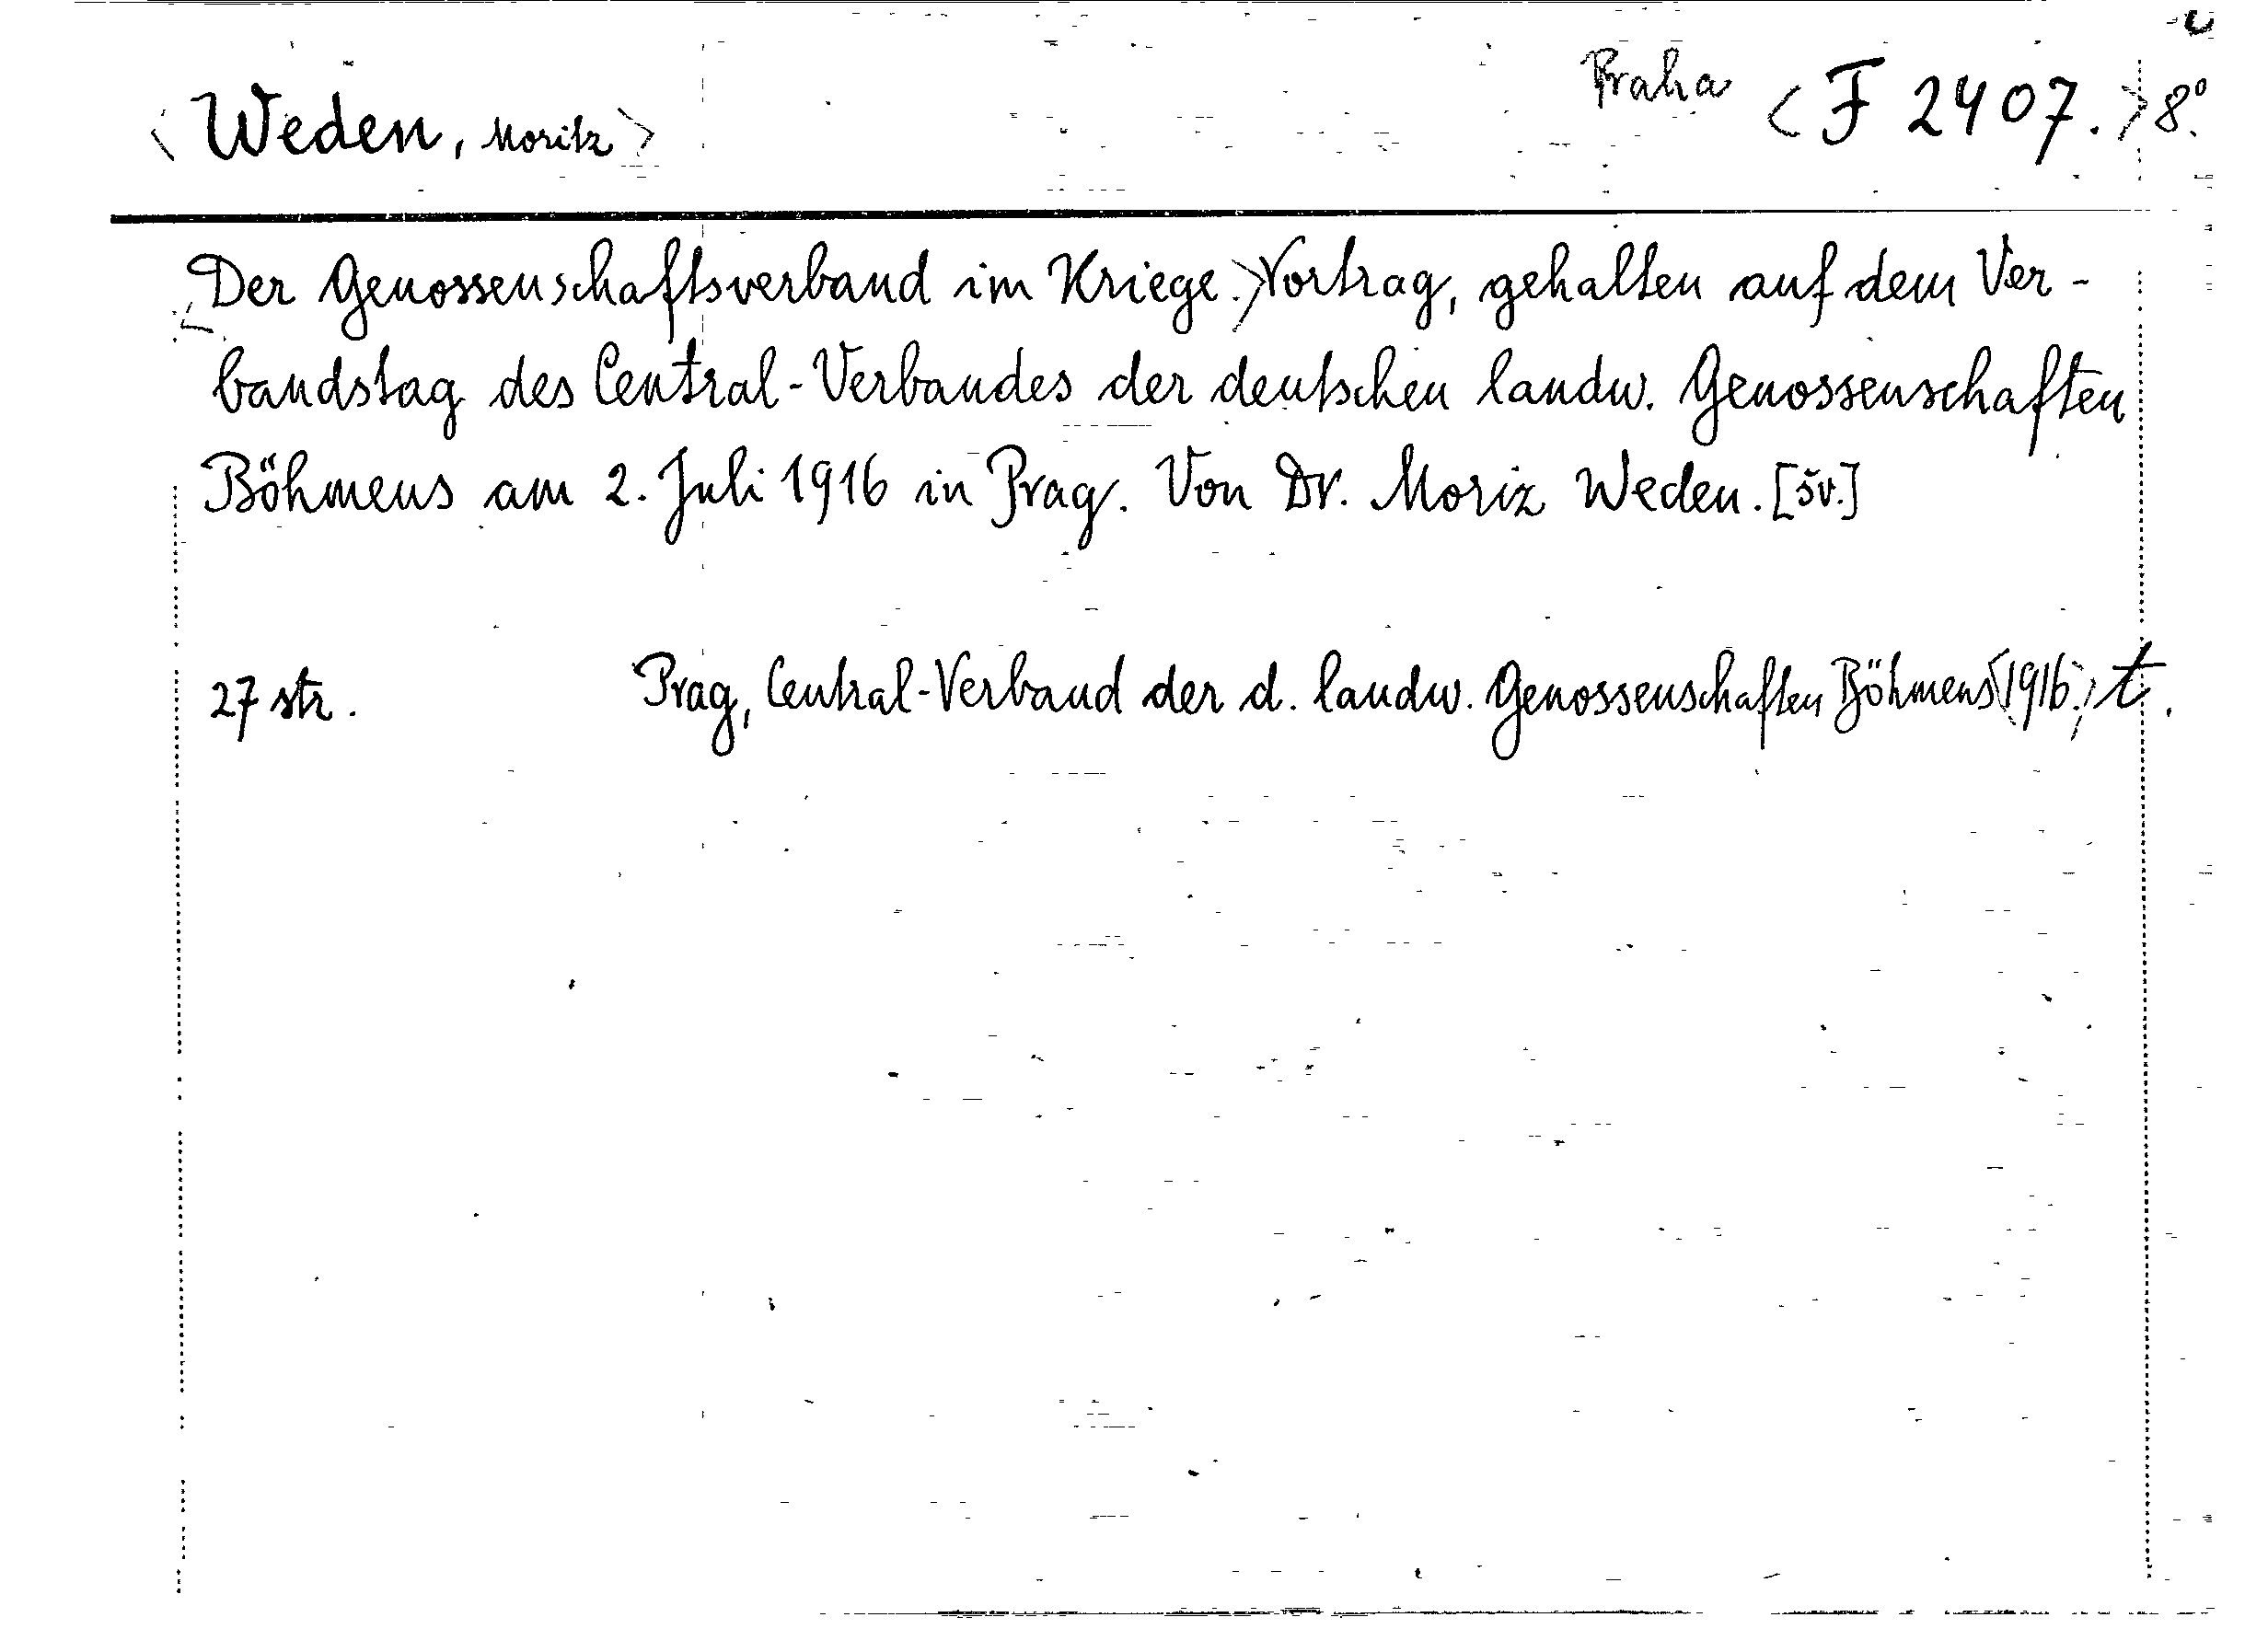 <Weden, Moritz> Praha <F 2407.> 8°.
<Der Genossenschaftsverband im Kriege.> Vortrag, gehalten auf dem Ver-
bandstag des Central-Verbandes der deutschen landw. Genossenschaften
Böhmens am 2. Juli 1916 in Prag. Von Dr. Moriz Weden. [šv.]
27 str. Prag, Central-Verband der d. landw. Genossenschaften Böhmens <1916.> t.